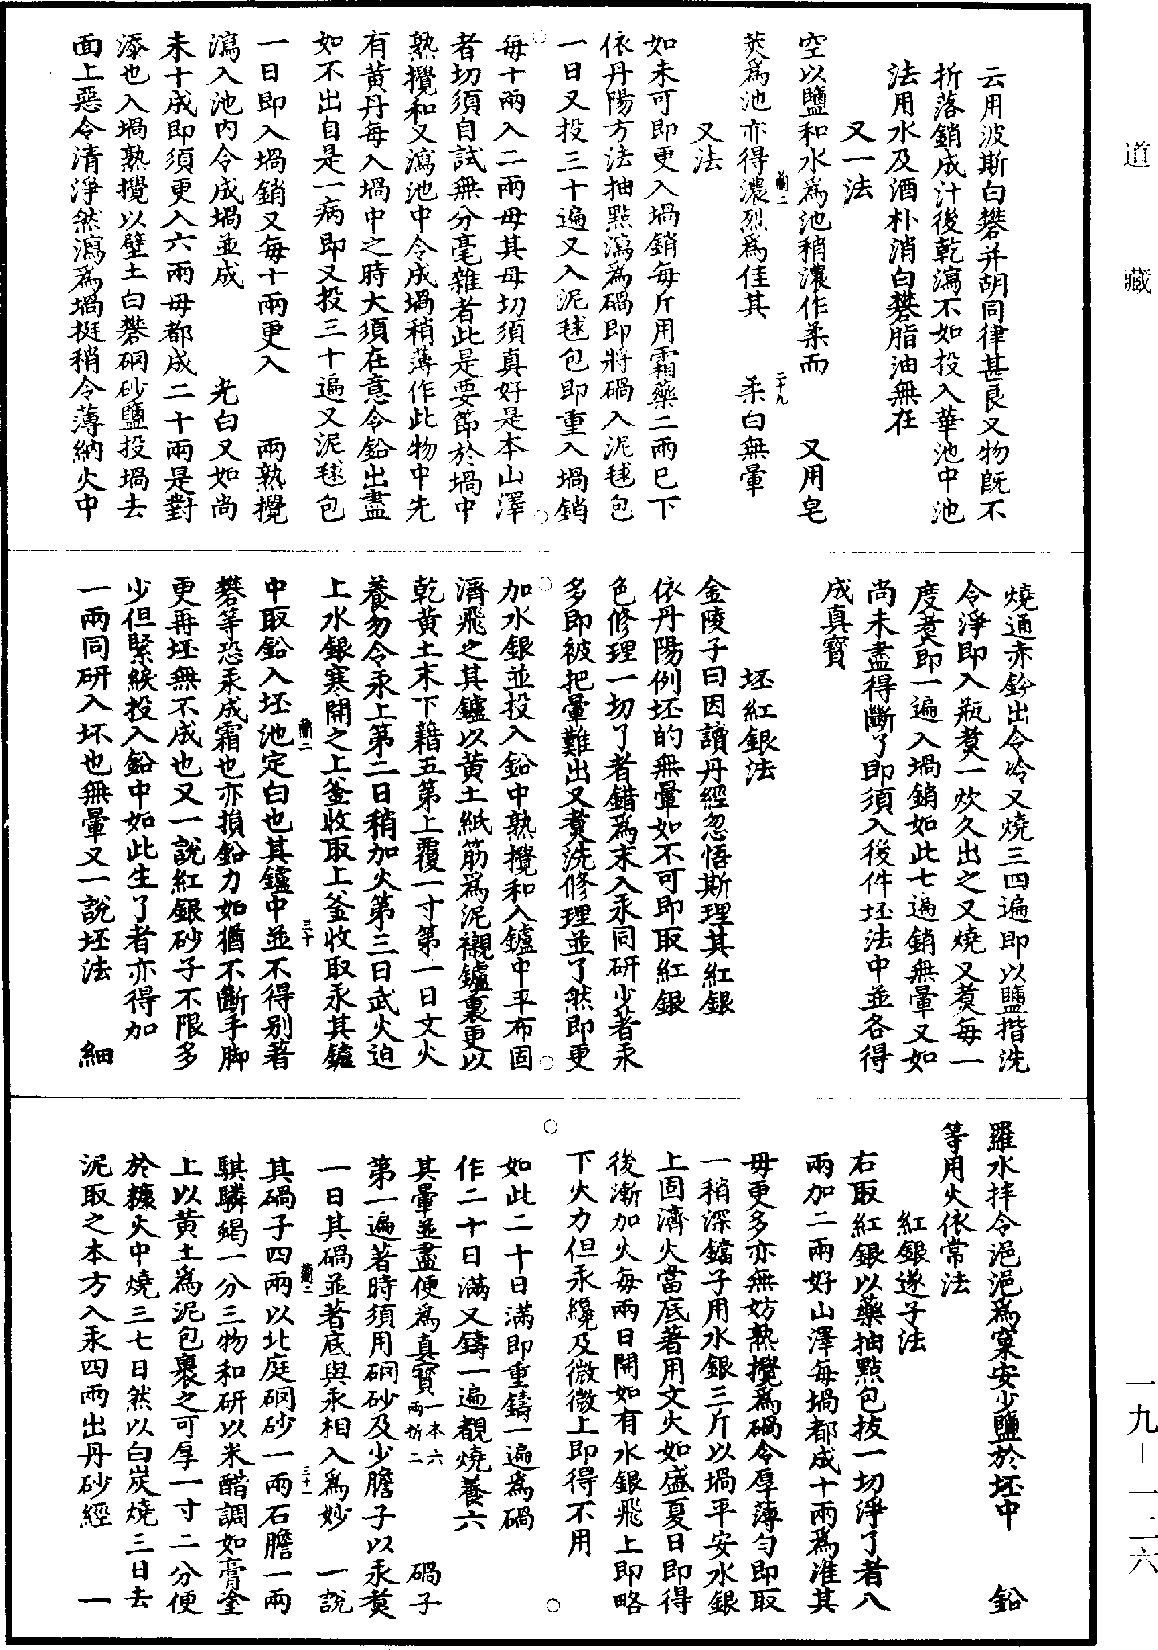 道藏
云用波斯白礬并胡同律甚良又物既不
折落銷成汁後乾瀉不如投入華池中池
法用水及酒朴消白礬脂油無在
又一法
空以鹽和水為池稍濃作柔而　又用皂
莢為池亦得濃烈為佳其　柔白無暈
又法
如未可即更入堝銷每斤用霜藥二兩已下
依丹陽方法抽點瀉為碢即將碢入泥毬包
一日又投三十遍又入泥毬包即重入堝銷
每十兩入二兩母其母切須真好是本山澤
者切須自試無分毫雜者此是要節於堝中
熟攪和又瀉池中令成堝稍薄作此物中先
有黃丹每入堝中之時大須在意令鉛出盡
如不出自是一病即又投三十遍又泥毬包
一日即入堝銷又每十兩更入　兩熟攪
瀉入池內令成堝並成　光白又如尚
未十成即須更入六兩母都成二十兩是對
添也入堝熟攪以壁土白礬硇砂鹽投堝去
面上惡令清淨然瀉為堝挺稍令薄納火中
燒通赤鈐出令冷又燒三四遍即以鹽揩洗
令淨即入瓶煑一炊久出之又燒又煑每一
度煑即一遍入堝銷如此七遍銷無暈又如
尚未盡得斷了即須入後件坯法中並各得
成真寶
坯紅銀法
金陵子曰因讀丹經忽悟斯理其紅銀
依丹陽例坯的無暈如不可即取紅銀
色修理一切了者錯為末入汞同研少著汞
多即被把暈難出又煑洗修理並了然即更
加水銀並投入鉛中熟攪和入鑪中平布固
濟飛之其鑪以黃土紙筋為泥襯鑪裏更以
乾黃土末下藉五第上覆一寸第一日文火
養勿令汞上第二日稍加火第三日武火迫
上水銀寒開之上釜收取上釜收取汞其鑪
中取鉛入坯池定白也其鑪中並不得別著
礬等恐汞成霜也亦損鉛力如猶不斷手脚
更再坯無不成也又一說紅銀砂子不限多
少但緊緩投入鉛中如此生了者亦得加
一兩同研入坏也無暈又一說坯法　細
羅水拌令浥浥為窠安少鹽於坯中　鉛
等用火依常法
紅銀遂子法
右取紅銀以藥抽點包拔一切淨了者八
兩加二兩好山澤每堝都成十兩為准其
毋更多亦無妨熟攪為碢令厚薄勻即取
一稍深鐺子用水銀三斤以堝平安水銀
上固濟火當底著用文火如盛夏日即得
後漸加火每兩日開如有水銀飛上即略
下火力但汞纔及微微上即得不用
如此二十日滿即重鑄一遍為碢
作二十日滿又鑄一遍覩燒養六
其暈並盡便為真寶一本六兩折二　碢子
第一遍著時須用硇砂及少膽子以汞煑
一日其碢並著底與汞相入為妙　一說
其碢子四兩以北庭硇砂一兩石膽一兩
騏驎竭一分三物和研以米醋調如膏塗
上以黃土為泥包裹之可厚一寸二分便
於糠火中燒三七日然以白炭燒三日去
泥取之本方入汞四兩出丹砂經　一
一九－一二六